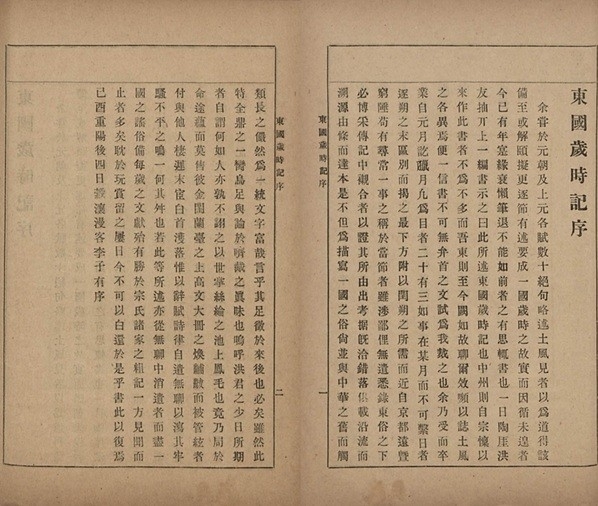 東國歲時記序
余嘗於元朝及上元各賦數十絕句略述土風見者以爲道得該
備至或解頤擬更逐節有述要成一國歲時之故實而因循未遑者
今已有年窒緣衰懶筆退不能如前者之有思輒書也一日陶厓洪
友抽丌上一編書示之曰此所述東國歲時記也中州則自宗懍以
來作此書者不爲不多而吾東則至今闕如故聊爾效嚬以誌土風
之各異爲便一信書不可無弁首之文試爲我之也余乃受而卒
業自元月訖臘月凡爲目者二十有三如事在某月而不可繫日者
逐朔之末區別而揭之最下方附以閏朔之所需而近自京都遠曁
窮陬苟有尋常一事之稱於當節者雖涉鄙俚無遺悉錄東俗之下
必博采傳記中合者以證其所由出考据旣洽錯落俱載沿流而
溯源由條而達本是不但爲描寫一國之俗尙並與中華之舊而觸
東國歲時記序
一
東國歲時記序
二
類長之儼然爲一統文字富哉言乎其足徵於來後也必矣雖然此
特全鼎之一臠烏足與論於嚌胾之眞味也嗚呼洪君之少日所期
者自謂何如人亦孰不詡之以世掌絲綸之池上鳳毛也竟乃局於
命途蘊而莫售彼金閨蘭臺之上高文大冊之煥黼黻而被管絃者
付與他人棲遲末宦白首濩落惟以詞賦詩律自遣無聊以瀉其牢
騷不平之鳴一何其舛也若此等所述亦從無聊中消遣者而盡一
國之謠俗備每歲之文獻殆有勝於宗氏諸家之粗記一方見聞而
止者多矣耽於玩賞留之屢日今不可以白還於是乎書此以復焉
己酉重陽後四日漫客李子有序